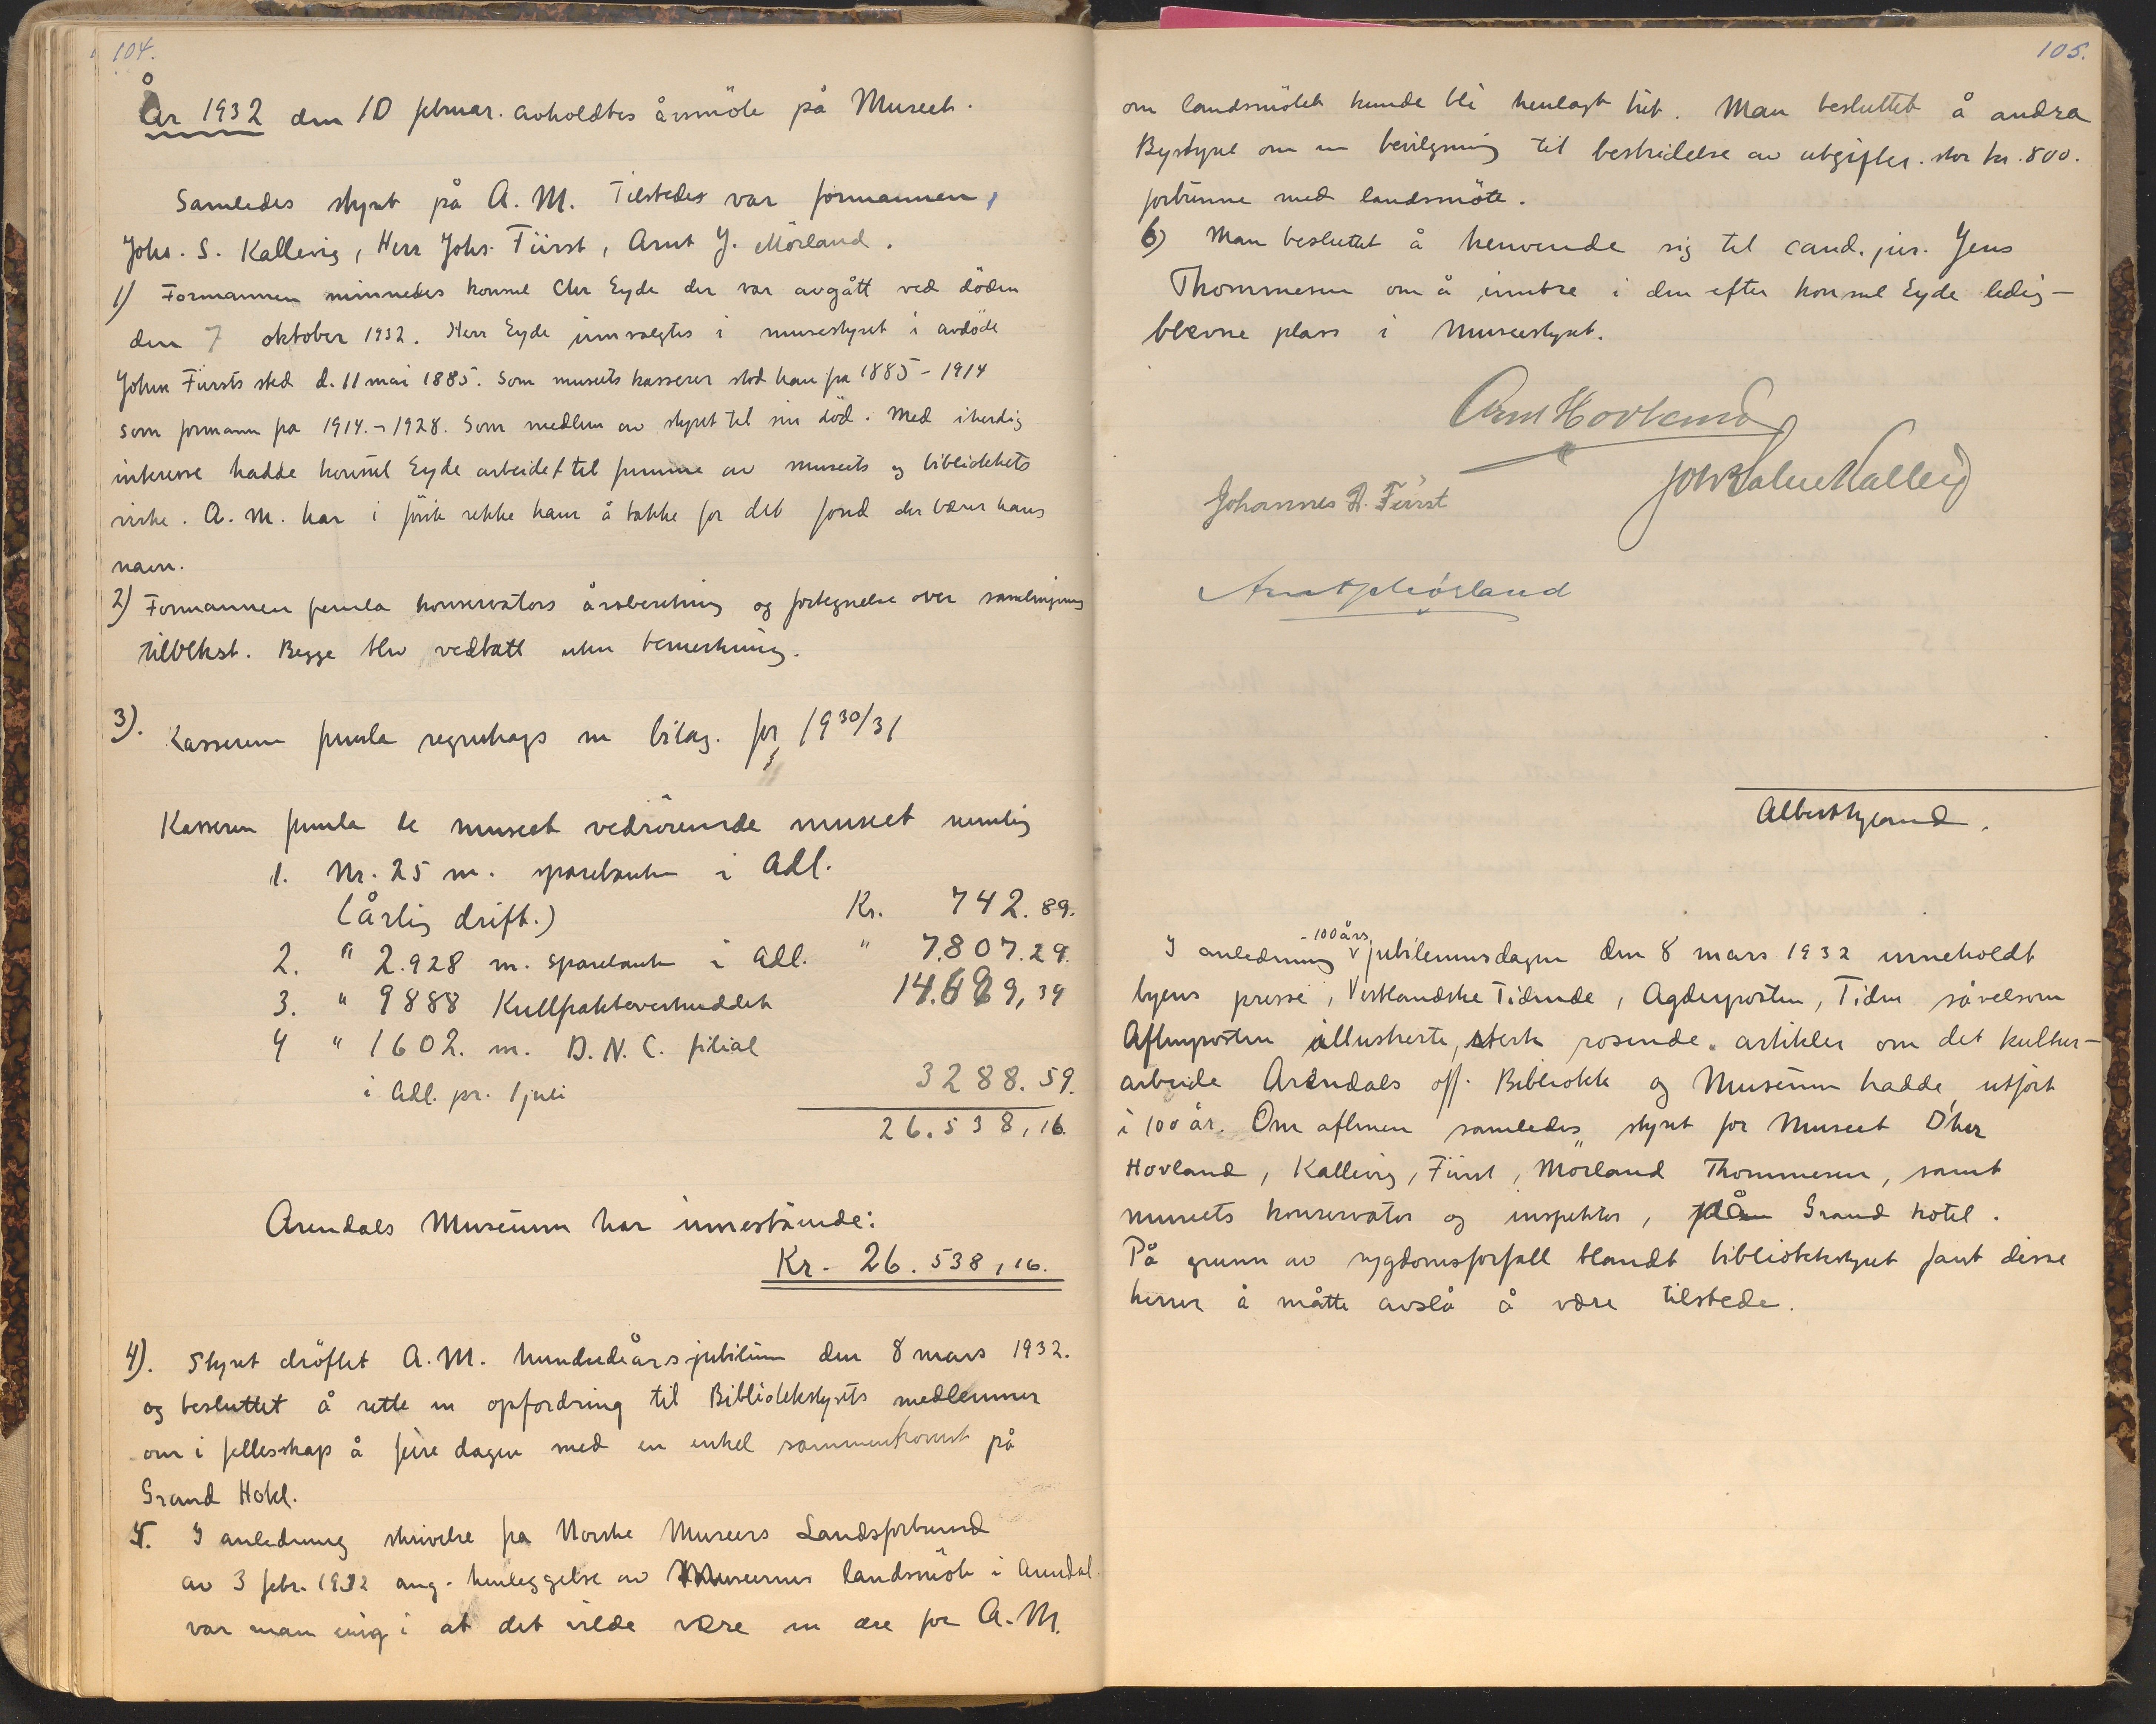 104.
År 1932 den 10 februar. avholdtes årsmöte på Museet.
Samledes styret på A. M. Tilstedes var formannen,
Johs. S. Kallevig, Herr Johs. Fürst, Arnt J. Mörland.
1) Formannen minnedes konsul Chr Eyde der var avgått ved döden
den 7 oktober 1932. Herr Eyde innvalgtes i musestyret i avdöde
John Fürsts sted d. 11 mai 1885. Som museets kasserer stod han fra 1885 - 1914
som formann fra 1914. - 1928. Som medlem av styret til sin död. Med iherdig
interesse hadde konsul Eyde arbeidet til fremme av museets og bibliotekets
virke. A. M. har i förste rekke ham å takke for det fond der bærer hans
navn.
2) Formannen femla konservators årsberetning og fortegnelse over samlingenes
tilvekst. Begge blev vedtatt uten bemerkning.
3). Kasseren fremla regnskaps m bilag. for 1930/31
Kasseren fremla de museet vedrörende museet nemlig
1. Nr. 25 m. sparebanken i Adl.
(årlig drift.) Kr. 742.89.
2. " 2.928 m. sparebanken i Adl. " 7.807.29.
3. " 9888 14.699,39
4 " 1602. m. D. N. C. filial
i Adl. pr. 1 juli 3288.59.
26.538,16.
Arendals Museum har innestående:
Kr. 26.538,16.
4). Styret dröftet A. M. hundredårsjubileum den 8 mars 1932.
og besluttet å rette en opfordring til Bibliotekstyrets medlemmer
om i fellesskap å feire dagen med en enkel sammenkomst på
Grand Hotel.
5. I anledning skrivelse fra Norske Museers Landsforbund
av 3 febr. 1932 ang. henleggelse av Museernes landsmöte i Arendal.
var man enig i at det vilde være en ære for A. M.
105.
om landsmötet kunde bli henlagt hit. Man besluttet å andra
Bystyret om en bevilgning til bestridelse av utgifter. stor kr. 800.
forbunne med landsmöte.
6) Man besluttet å henvende sig til cand. jur. Jens
Thommesen om å inntre i den efter konsul Eyde ledig-
blevne plass i Museestyret.
Arnt Hovland
Johannes Fürst
Arnt J Mörland
Albert Kjland.
I anledning - 100 års jubileumsdagen den 8 mars 1932 inneholdt
byens presse, Vestlandske Tidende, Agderposten, Tiden såvelsom
Aftenposten illustrerte, sterk rosende artikler om det kultur-
arbeide Arendals off. Bibliotek og Museum hadde utfört
i 100 år. Om aftenen samledes styret for Museet D'her
Hovland, Kallevig, Fürst, Mörland Thommesen, samt
museets konservator og inspektör, på Grand hotel.
På grunn av sygdomsforfall blandt bibliotekstyret fant disse
herrer å måtte avslå å være tilstede.